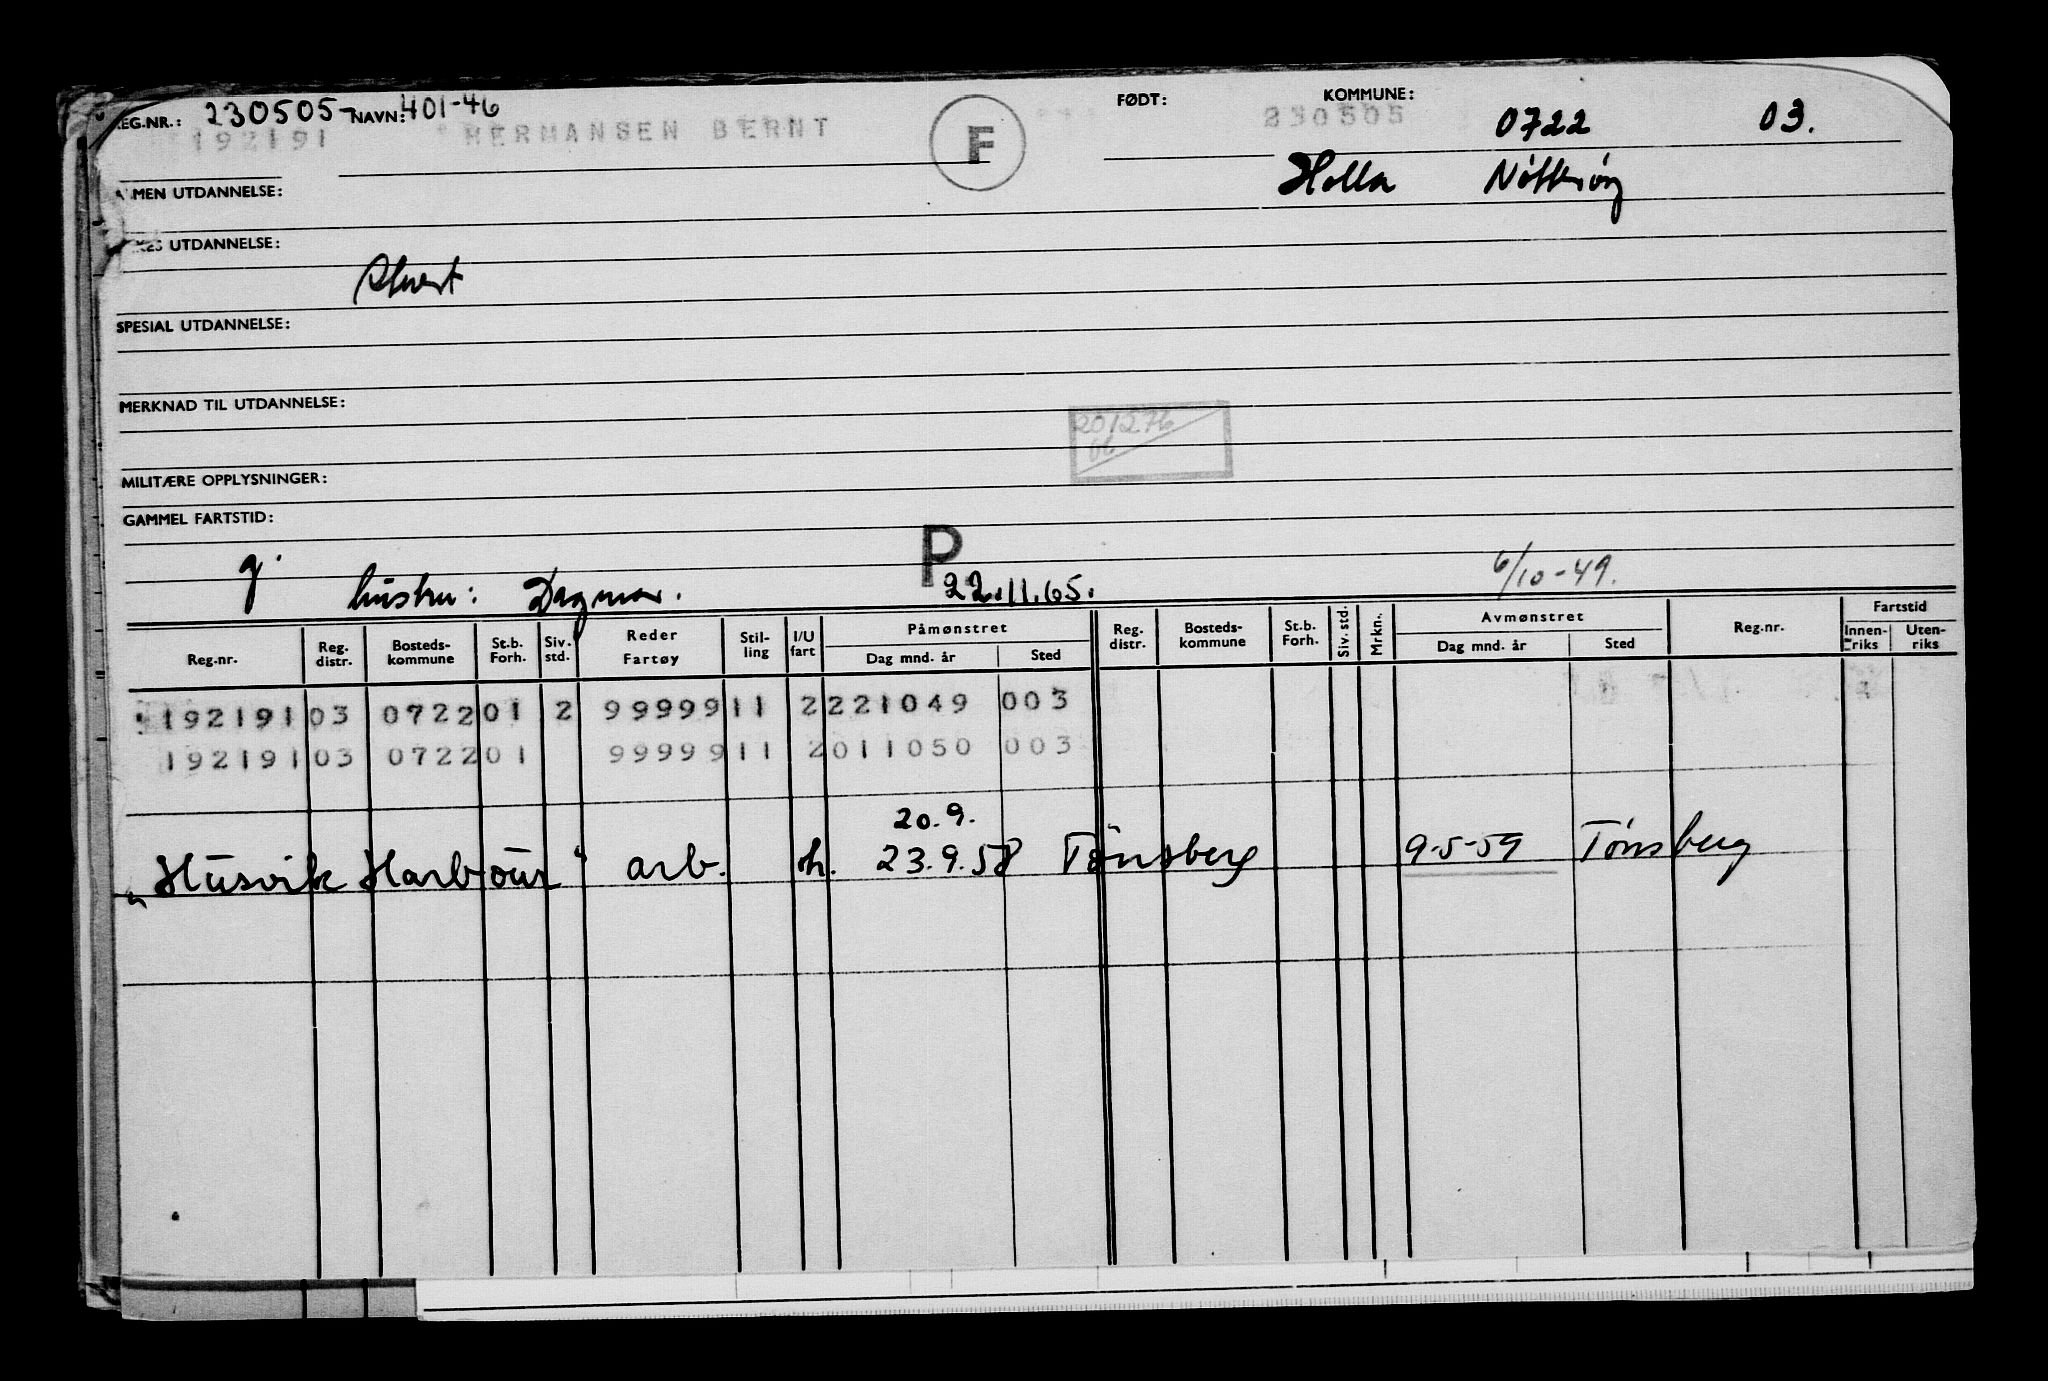 REG.NR.: 230505- NAVN: 401-46 FØDT: KOMMUNE:
192191 HERMANSEN BERNT F 230505 0722 03.
Holla Nøtterøy
UTDANNELSE:
UTDANNELSE:
SPESIAL UTDANNELSE:
MERKNAD TIL UTDANNELSE:
201276
MILITÆRE OPPLYSNINGER:
GAMMEL FARTSTID:
g. P 6/10-49.
hustru: Dagmar. 22.11.65.
Reg.nr. Reg. distr. Bosteds-kommune St.b. Forh. Siv. std. Reder Fartøy Stil-ling I/U fart Påmønstret Dag mnd. år Sted Reg. distr. Bosteds-kommune St.b. Forh. Siv. std. Mrkn. Avmønstret Dag mnd. år Sted Reg.nr. Fartstid Innen-riks Uten-riks
192191 03 0722 01 2 99999 11 2 221049 003
192191 03 0722 01 99999 11 2 011050 003
20.9.
"Husvik Harbour" arb. h. 23.9.58 Tønsberg 9-5-59 Tønsberg